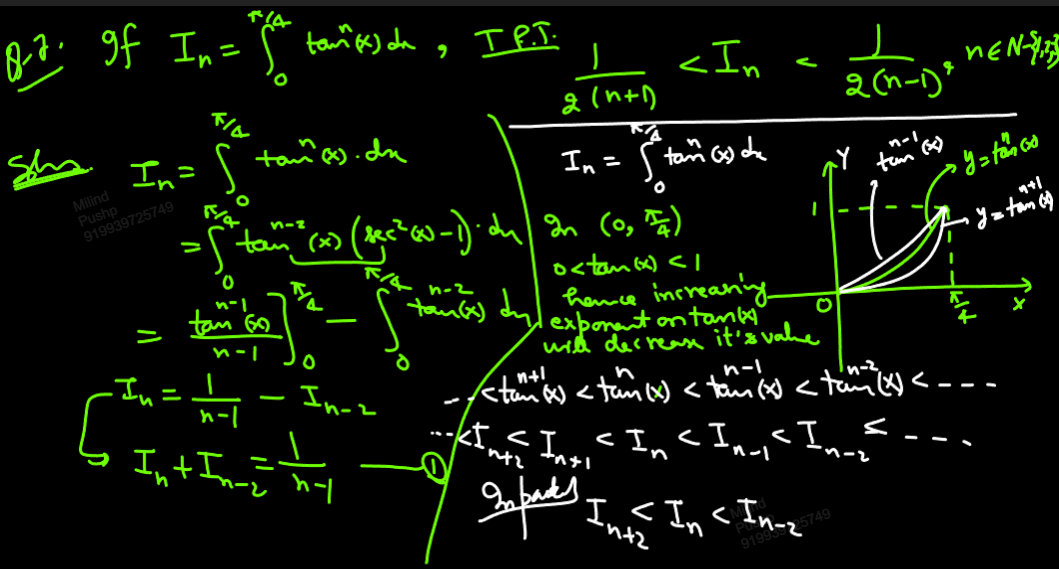 Q-7. If Iₙ = ∫₀^{π/4} tanⁿ(x) dx , T.P.T. 1/(2(n+1)) < Iₙ < 1/(2(n-1)), n ∈ N-
Soln. Iₙ = ∫₀^{π/4} tanⁿ(x)·dx
= ∫₀^{π/4} tanⁿ⁻²(x) (sec²(x)-1)·dx
= tanⁿ⁻¹(x)/(n-1) ]₀^{π/4} - ∫₀^{π/4} tanⁿ⁻²(x) dx
Iₙ = 1/(n-1) - Iₙ₋₂
Iₙ + Iₙ₋₂ = 1/(n-1) — ①
Iₙ = ∫₀^{π/4} tanⁿ(x) dx
In (0, π/4)
0 < tan(x) < 1
hence increasing
exponent on tan(x)
will decrease it's value
Y
tanⁿ⁻¹(x)
y = tanⁿ(x)
y = tanⁿ⁺¹(x)
1
O
π/4
X
--- < tanⁿ⁺¹(x) < tanⁿ(x) < tanⁿ⁻¹(x) < tanⁿ⁻²(x) < ---
--- < Iₙ₊₂ < Iₙ₊₁ < Iₙ < Iₙ₋₁ < Iₙ₋₂ < ---
Iₙ₊₂ < Iₙ < Iₙ₋₂
Milind
Pushp
919939725749
Milind
Pushp
919939725749